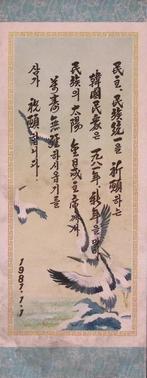 民主、民族統一을 祈願하는
韓國民衆은 一九八一年、新年을
民族의 太陽 金日成主席께서
萬壽無疆하시옵기를
삼가 祝願합니다.
1981.1.1